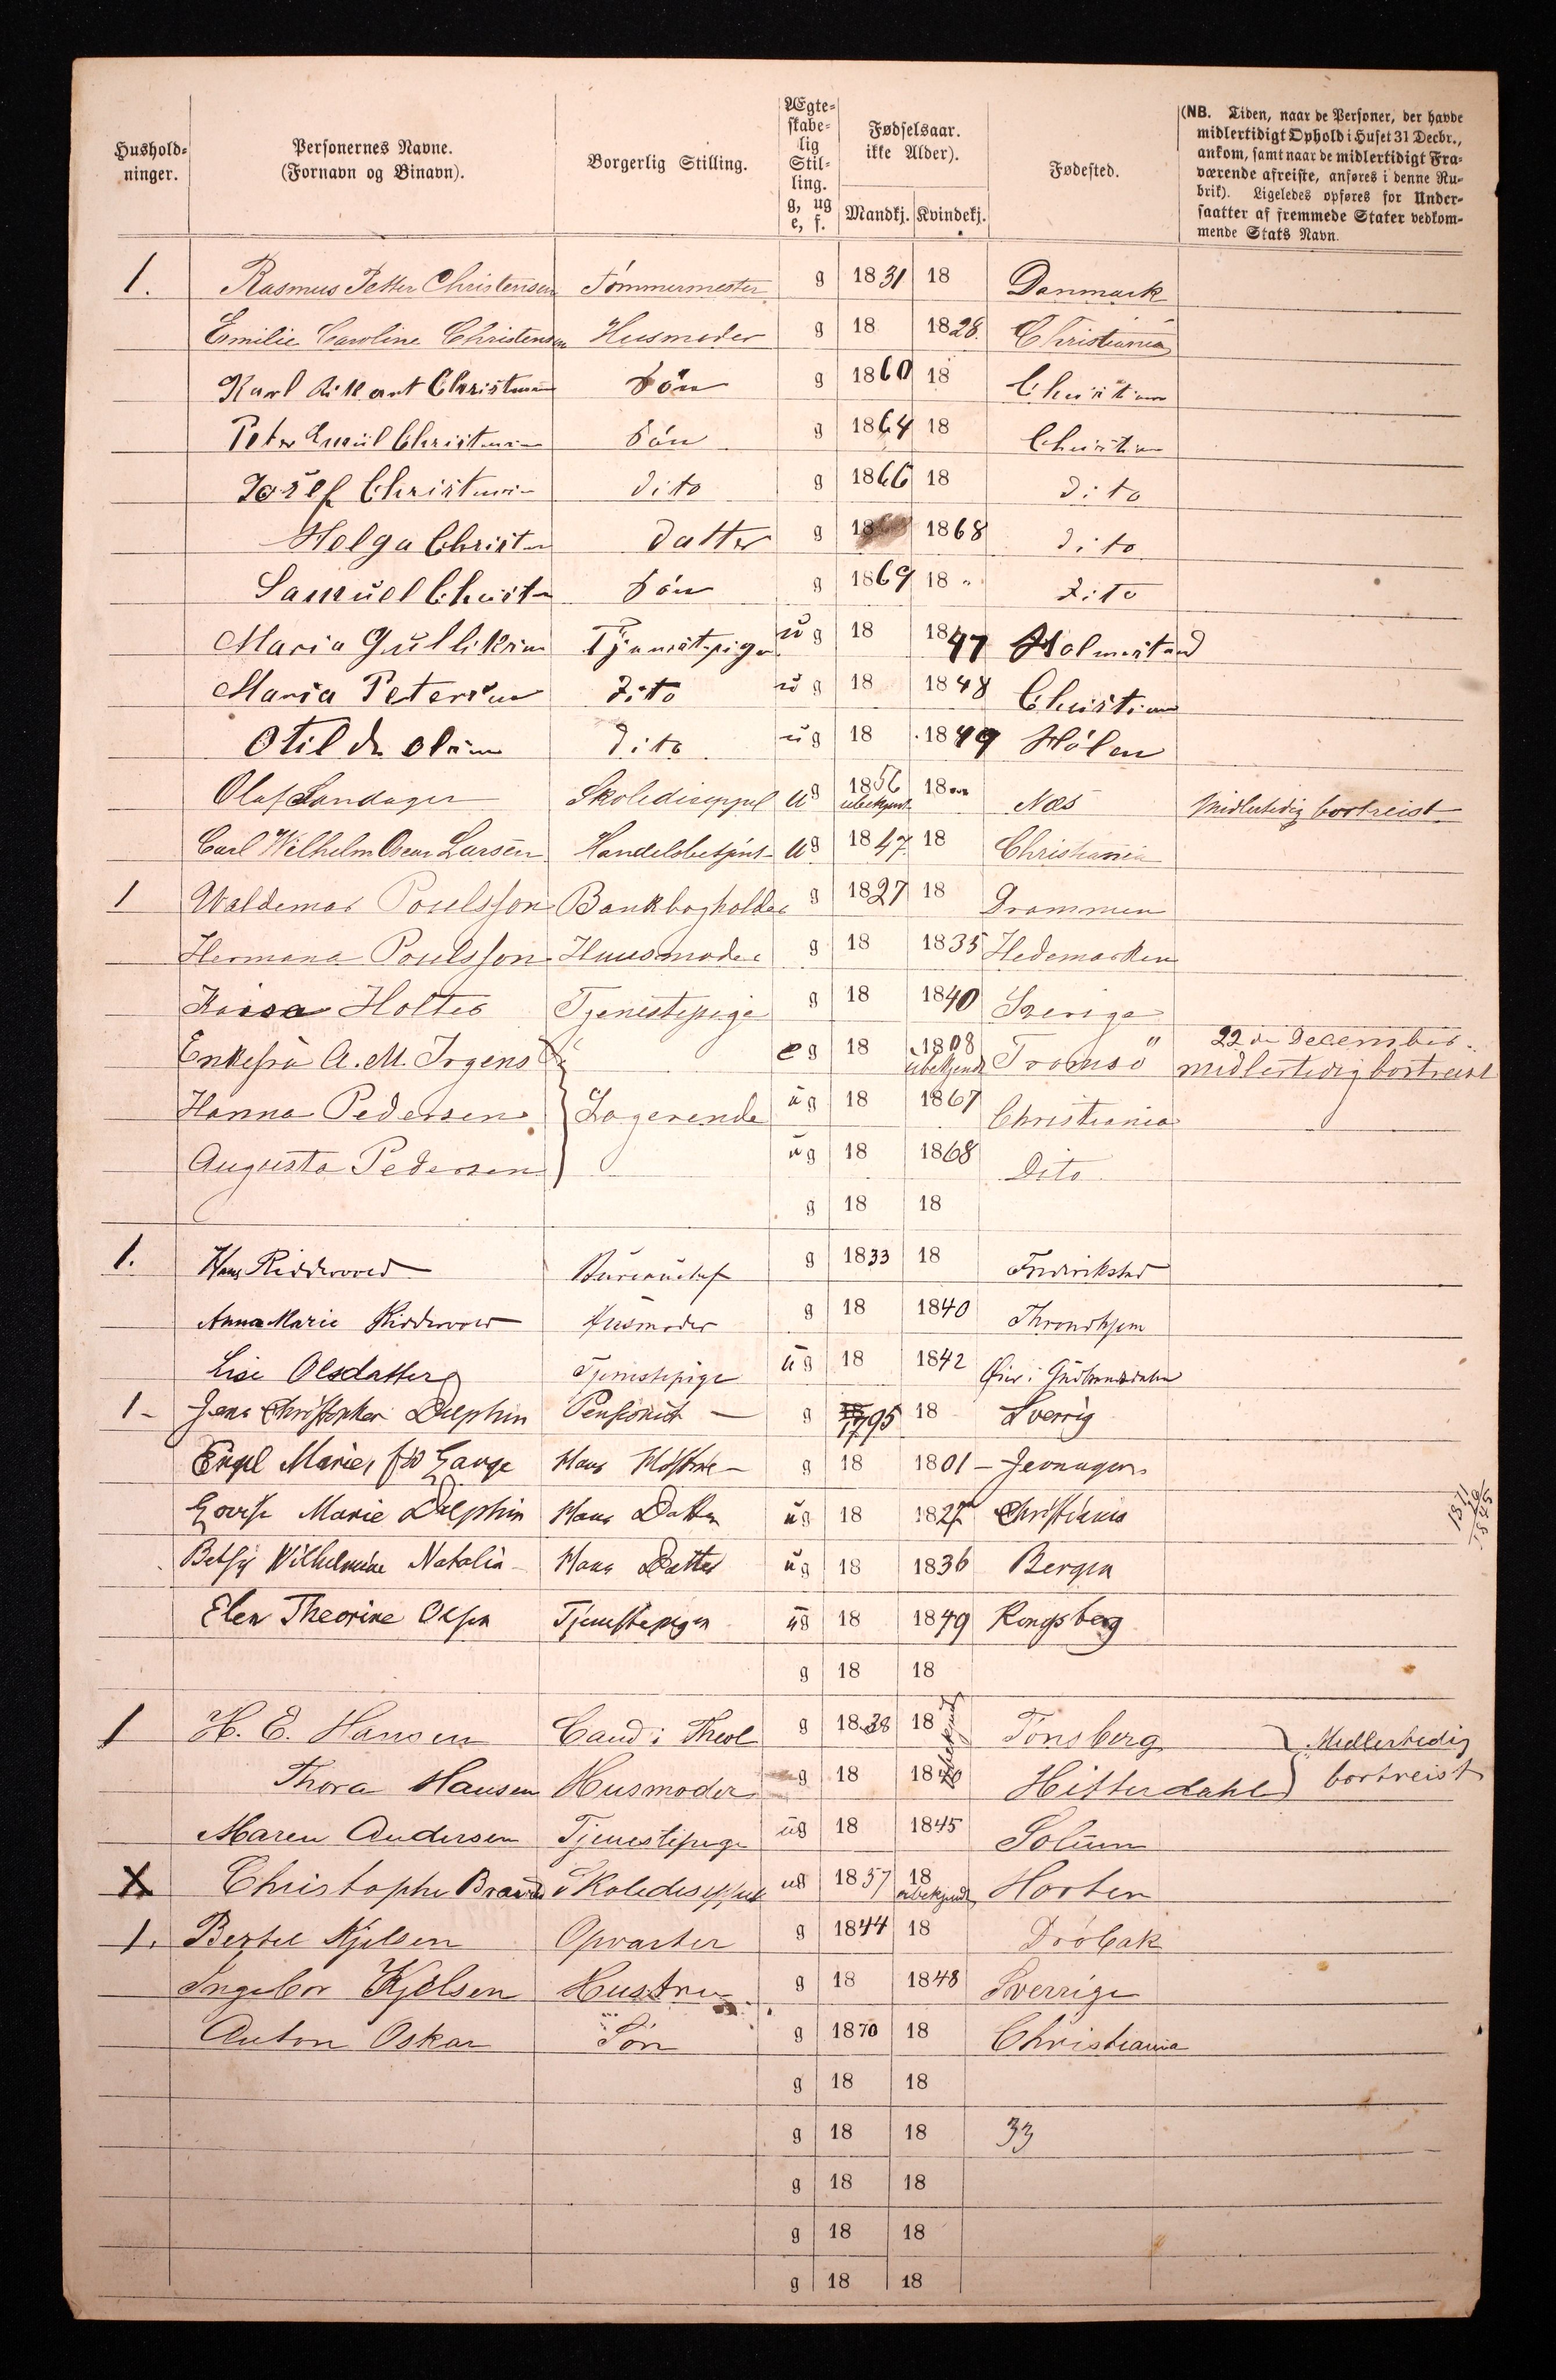 Hushold-
ninger.
Personernes Navne.
(Fornavn og Binavn).
Borgerlig Stilling.
Ægte-
skabe-
lig
Stil-
ling.
g, ug
e, f.
Fødselsaar.
ikke Alder).
Mandkj. Kvindekj.
Fødested.
(NB. Tiden, naar de Personer, der havde
midlertidigt Ophold i Huset 31 Decbr.,
ankom, samt naar de midlertidigt Fra-
værende afreiste, anføres i denne Ru-
brik). Ligeledes opføres for Under-
saatter af fremmede Stater vedkom-
mende Stats Navn.
1. Rasmus Petter Christensen Tömmermester g 1831 18 Danmark
Emilie Caroline Christensen Husmoder g 18 1828. Christiania
Karl Christensen Sön g 1860 18 Christian
Peter Emil Christensen Sön g 1864 18 Christian
Josef Christensen dito g 1866 18 dito
Helga Christen Datter g 18 1868 dito
Samuel Christen Sön g 1869 18 " dito
Maria Gulliksen Tjenestepige ug 18 1847 Holmestrand
Maria Petersen dito ug 18 1848 Christian
Otilde Olsen dito ug 18 1849 Hölen
Olaf Sandager Skolediscippel ug 1856 ubekjendt 18 Næs Midlertidig bortreist
Carl Wilhelm Oscar Larsen Handelsbetjent ug 1847 18 Christiania
1 Waldemar Poulsson Bankbogholder g 1827 18 Drammen
Hermana Poulsson Huusmoder g 18 1835 Hedemarken
Kaisa Holter Tjenestepige g 18 1840 Sverige
Enkefru A. M. Irgens eg 18 1808 ubekjendt Tromsö 22 de December.
midlertidig bortreist
Hanna Pedersen Logerende ug 18 1867 Christiania
Augusta Pedersen ug 18 1868 Dito
g 18 18
1. Hans Riddervold Bureauchef g 1833 18 Fredrikstad
Anna Marie Riddervold Husmoder g 18 1840 Throndhjem
Lise Olsdatter Tjenestepige ug 18 1842 Öier i Gudbrandsdalen
1- Jens Christopher Delphin Pensionist — g 18 1795 18 Sverrig
Engel Marie, Hans Hustrue — g 18 1801 - Jevnager
Lovise Marie Delphin Hans Datter ug 18 1827 Christiania
Betsy Wilhelmine Natalia - Hans Datter ug 18 1836 Bergen
Elen Theorine Olsen Tjenestepigen ug 18 1849 Kongsberg
1871
26
1845
g 18 18
1 H. E. Hansen Cand: Theol g 1838 18 Tönsberg Midlertidig
Thora Hansen Husmoder g 18 1840 ubekjendt Hitterdahl bortreist
Maren Andersen Tjenestepige ug 18 1845 Solum
X Christopher Skolediscippel ug 1857 18 ubekjendt Horten
1. Bertel Kjelsen Opvarter g 1844 18 Dröbak
Ingebor Kjelsen Hustru g 18 1848 Sverrige
Anton Oskar Sön g 1870 18 Christiania
g 18 18
g 18 18 33
g 18 18
g 18 18
g 18 18